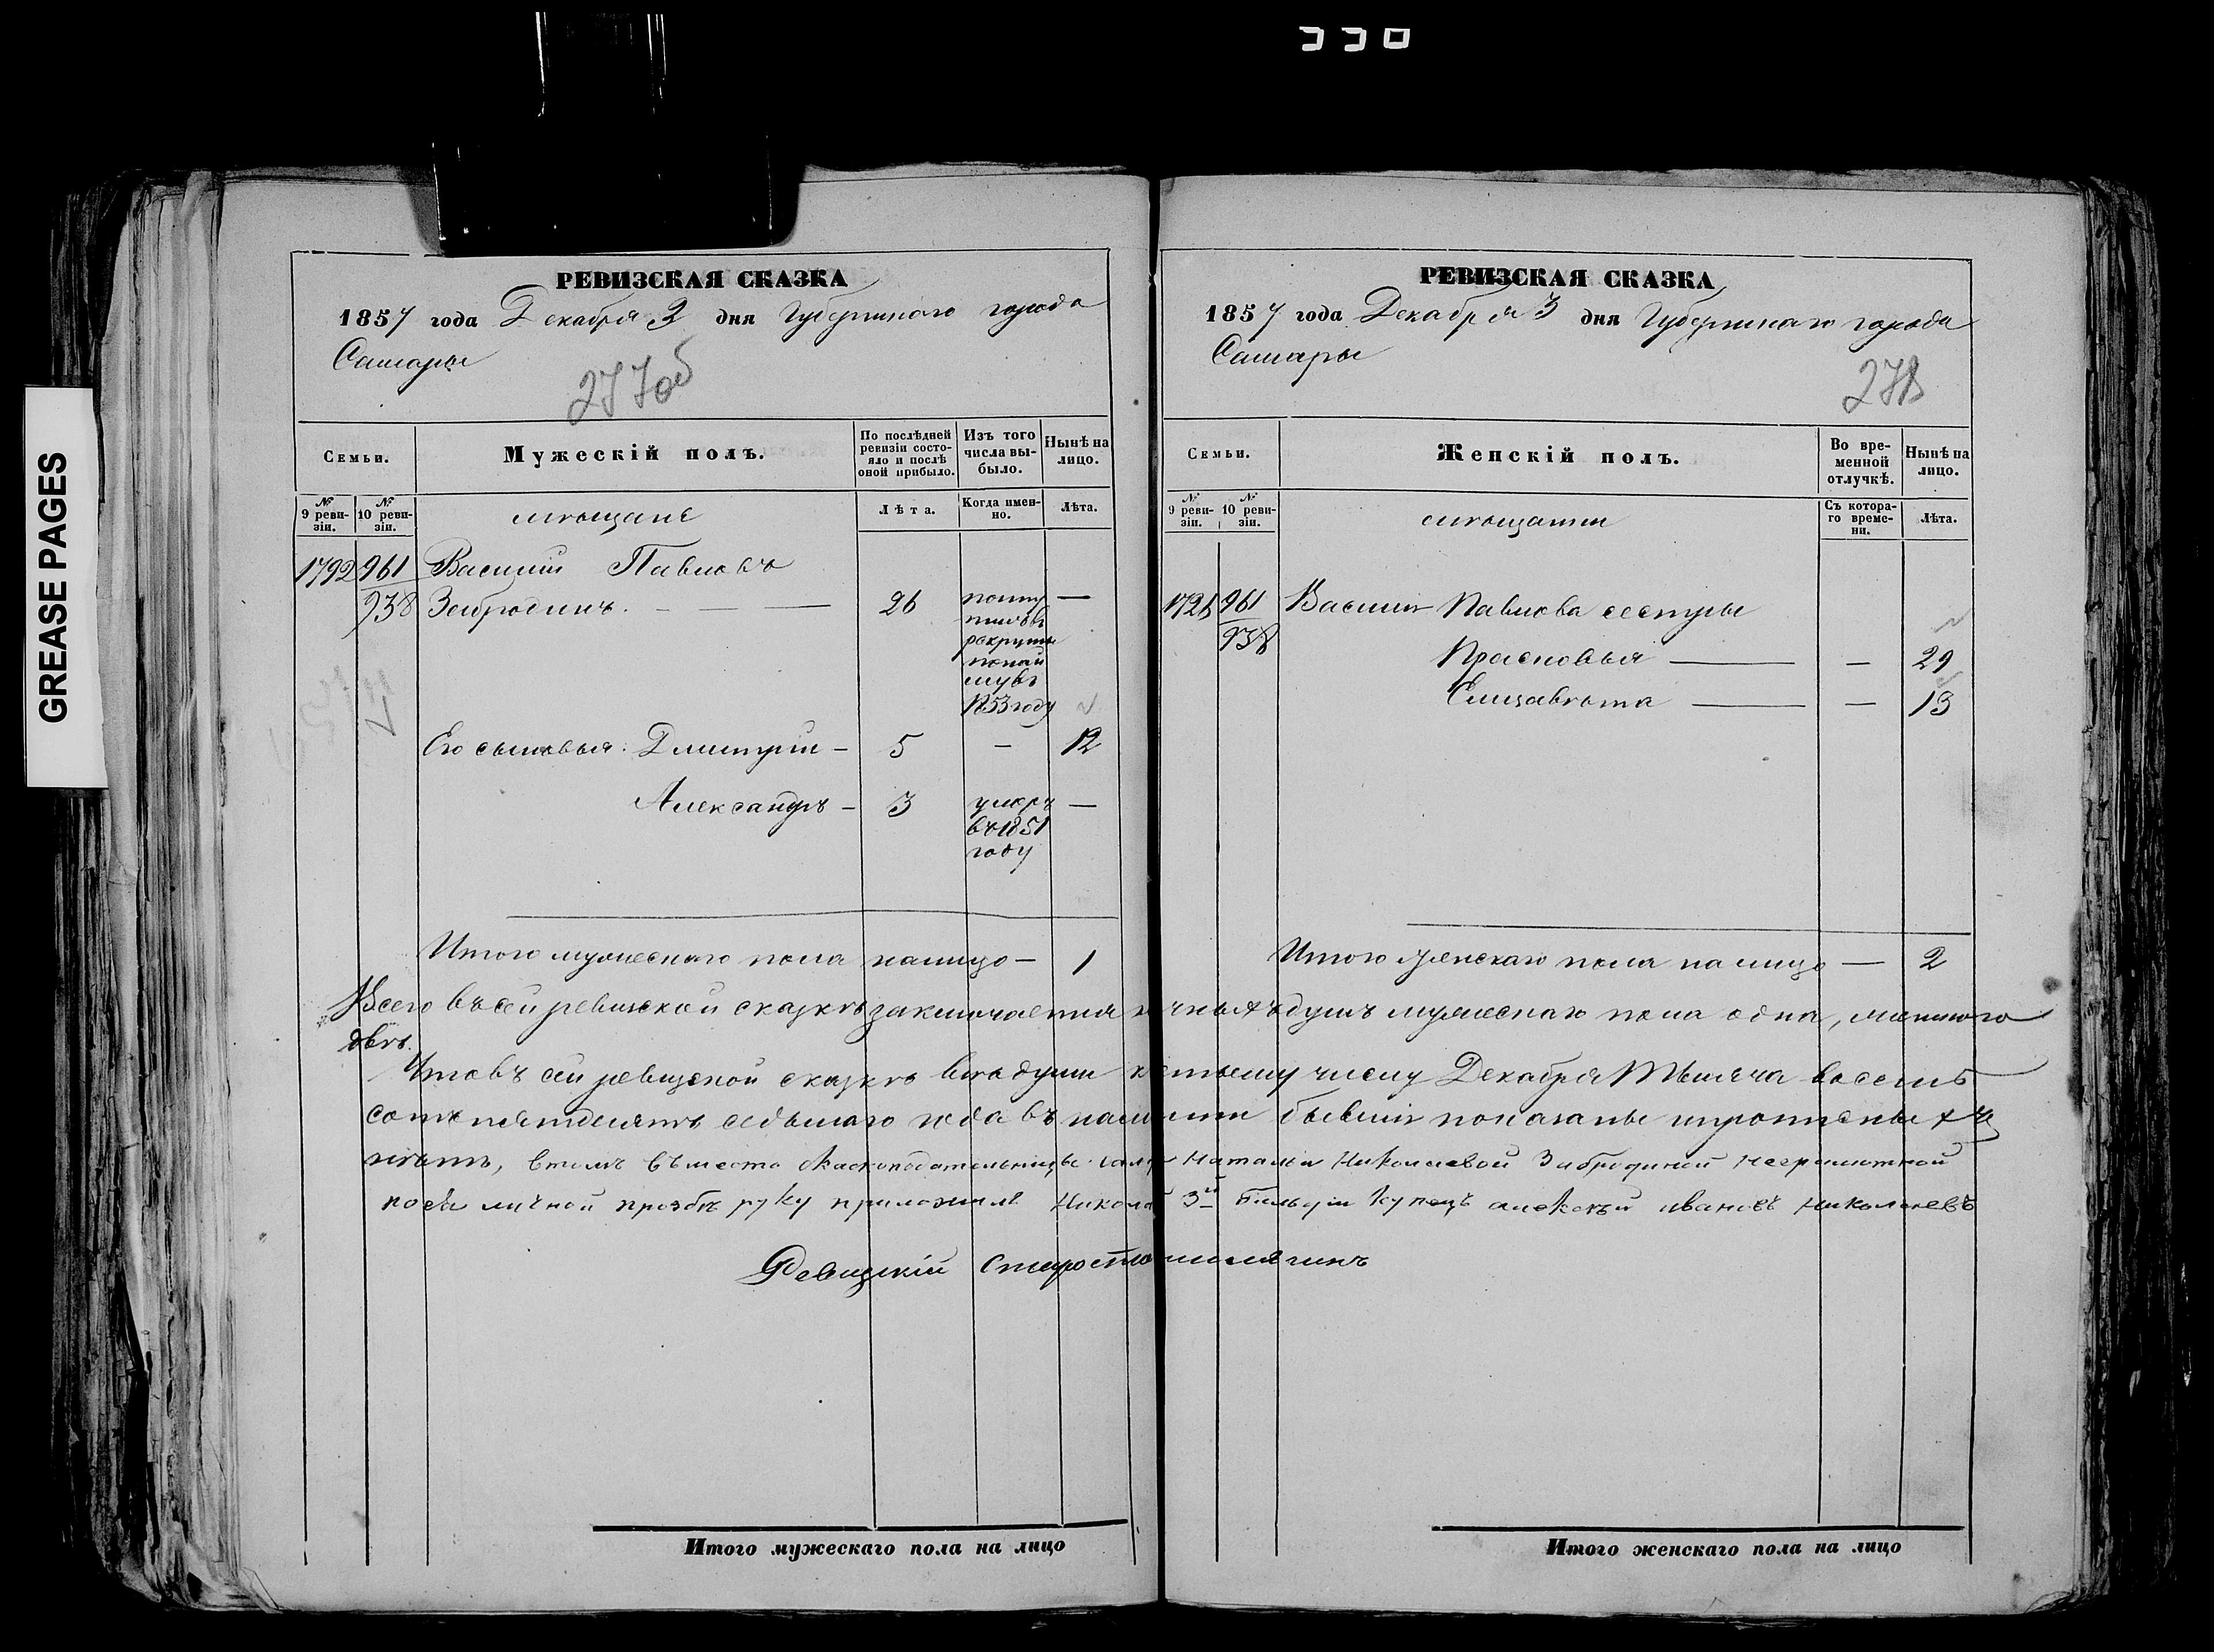 GREASE PAGES
РЕВИЗСКАЯ СКАЗКА
1857 года Декабря 3 дня Губернскаго города
Самары
277об
Семьи.
Мужескій полъ.
По послѣдней ревизіи состояло и послѣ оной прибыло.
Изъ того числа выбыло.
Нынѣ на лицо.
№ 9 ревизіи.
№ 10 ревизіи.
мѣщане
Лѣта.
Когда именно.
Лѣта.
1792 961 Василій Павловъ
938 Забродинъ. — 26 —
рекруты
1853 году
Его сыновья: Дмитрій — 5 — 12
Александръ — 3 умеръ —
въ 1851
году
Итого мужескаго пола налицо — 1
РЕВИЗСКАЯ СКАЗКА
1857 года Декабря 3 дня Губернскаго города
Самары
278
Семьи.
Женскій полъ.
Во временной отлучкѣ.
Нынѣ на лицо.
№ 9 ревизіи.
№ 10 ревизіи.
мѣщанки
Съ котораго времени.
Лѣта.
961 Василія Павлова сестры
938 Прасковья — — 29
Елизавѣта — — 19
Итого женскаго пола на лицо — 2
Всего въ сей ревизской сказкѣ заключается наличныхъ душъ мужескаго пола одна, женскаго
двѣ.
Что въ сей ревизской сказкѣ всѣ души къ 3му числу Декабря тысяча восемь
сотъ пятдесятъ седьмаго года въ наличности бывшія показаны и пропис­ныхъ
нѣтъ, в томъ въместо скаскоподательницы Натальи Николаевой Забродиной неграмотной
по ея личной прозбѣ руку приложилъ 3й Гильдіи купецъ Алексѣй Ивановъ Николаевъ
Ревизскій Староста
Итого мужескаго пола на лицо
Итого женскаго пола на лицо